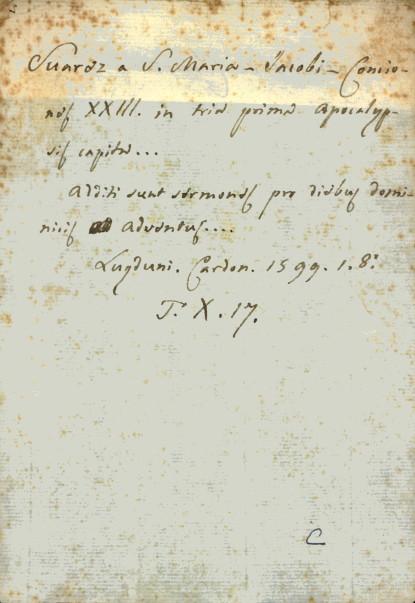 Suarez a S. Maria - Jacobi - Concio-
nes XXIII. in tria prima Apocalyp-
sis capita...
Additi sunt sermones pro diebus domi-
nicis Adventus....
Lugduni. Cardon. 1599. 1. 8.º
T. X. 17.
C